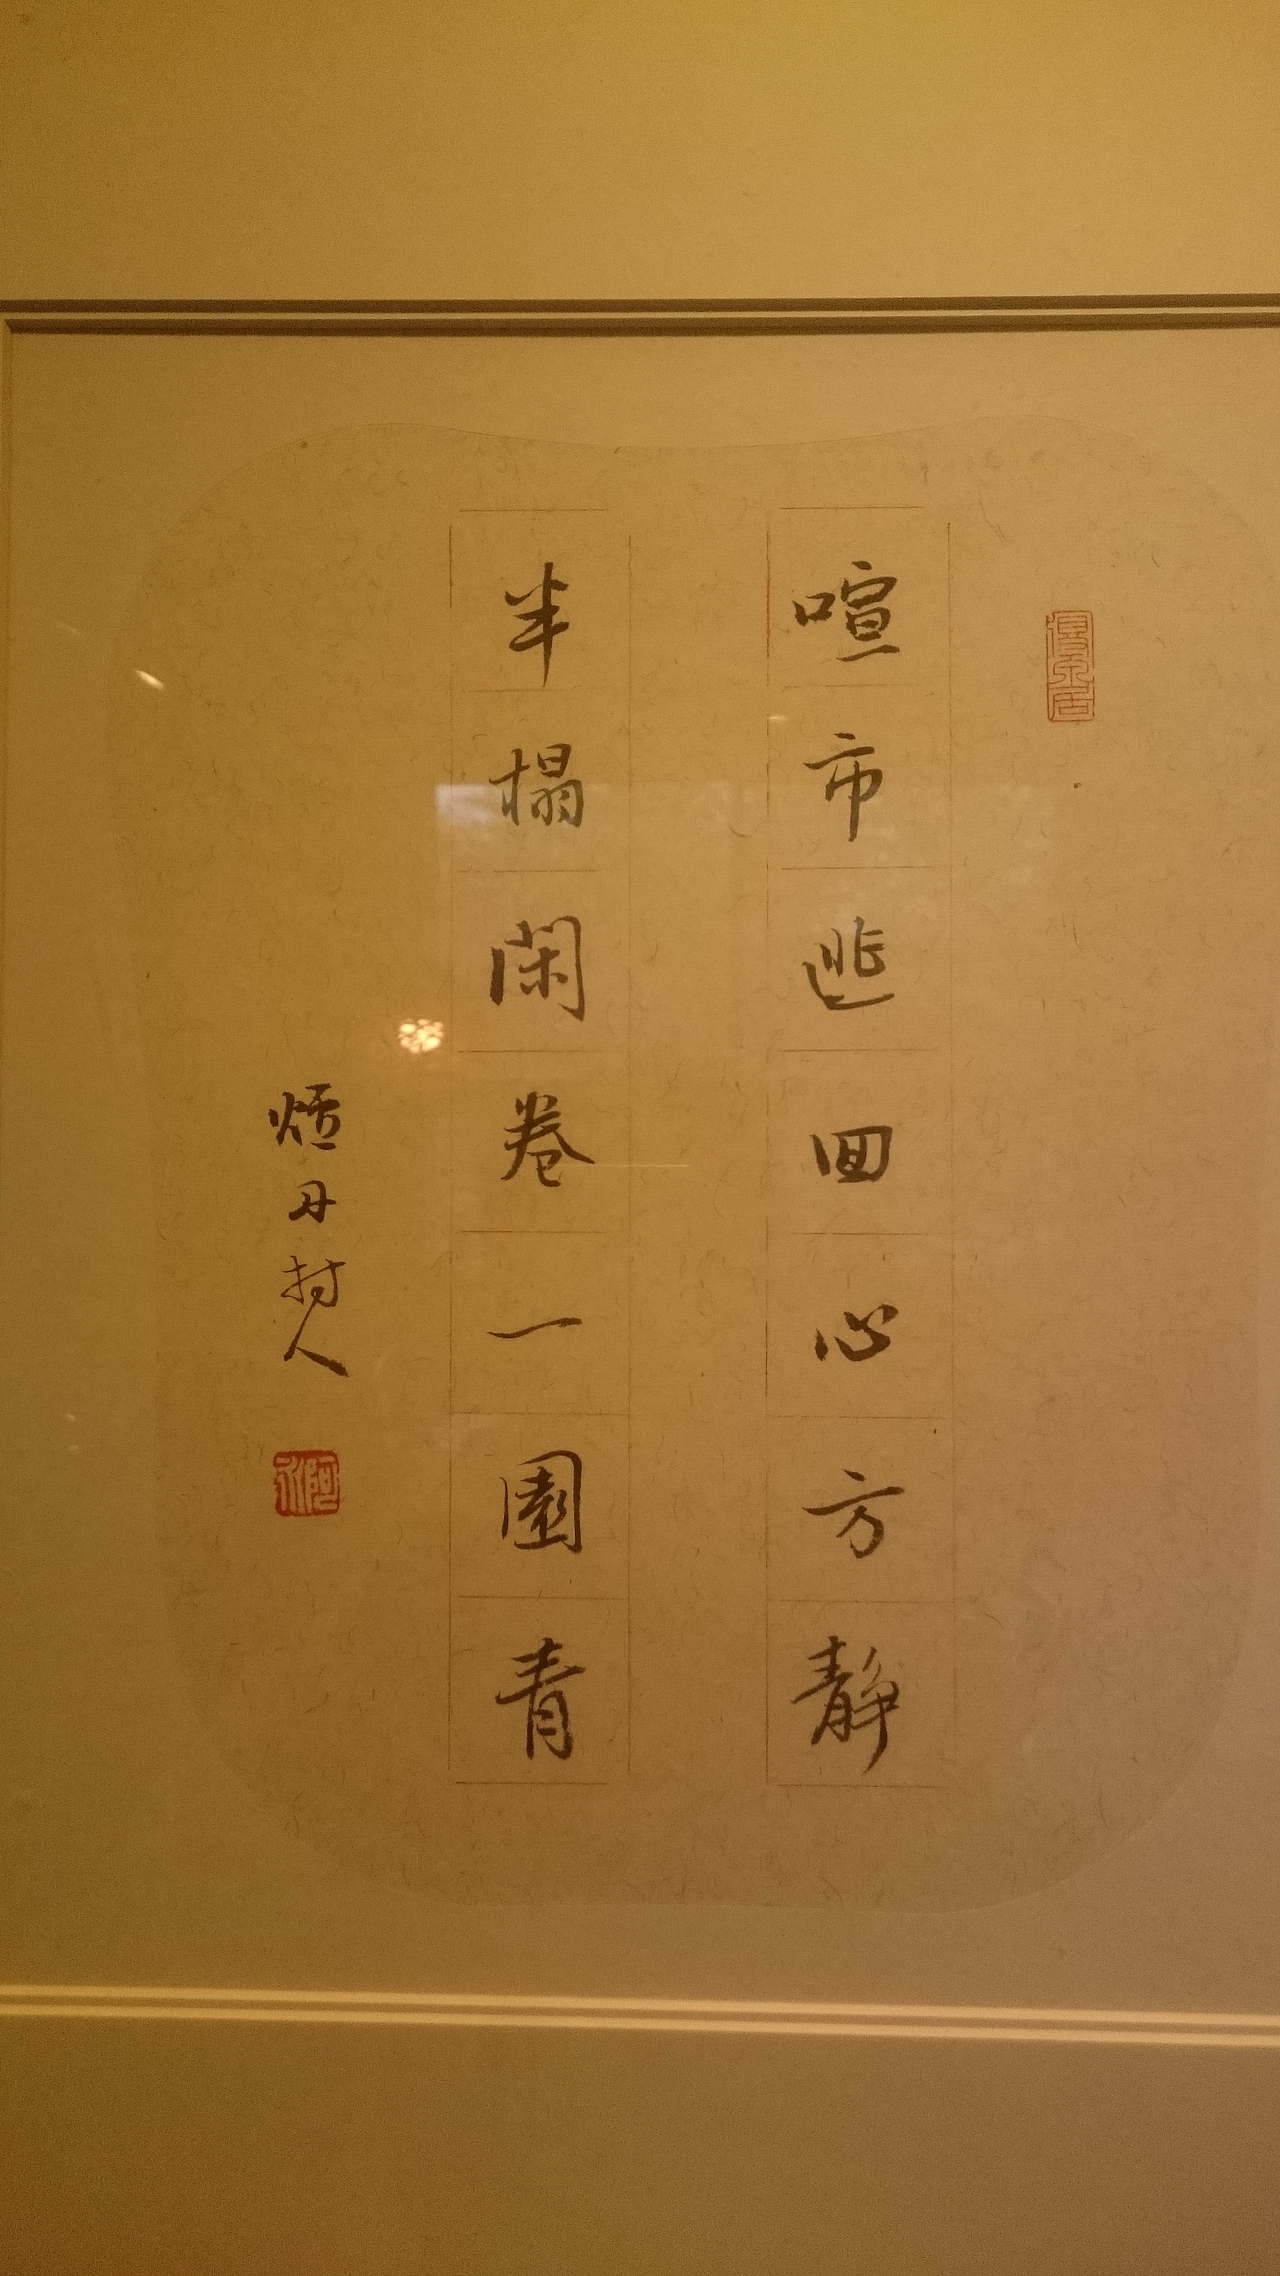 喧市逃回心方静
半榻闲卷一園青
烟丹村人